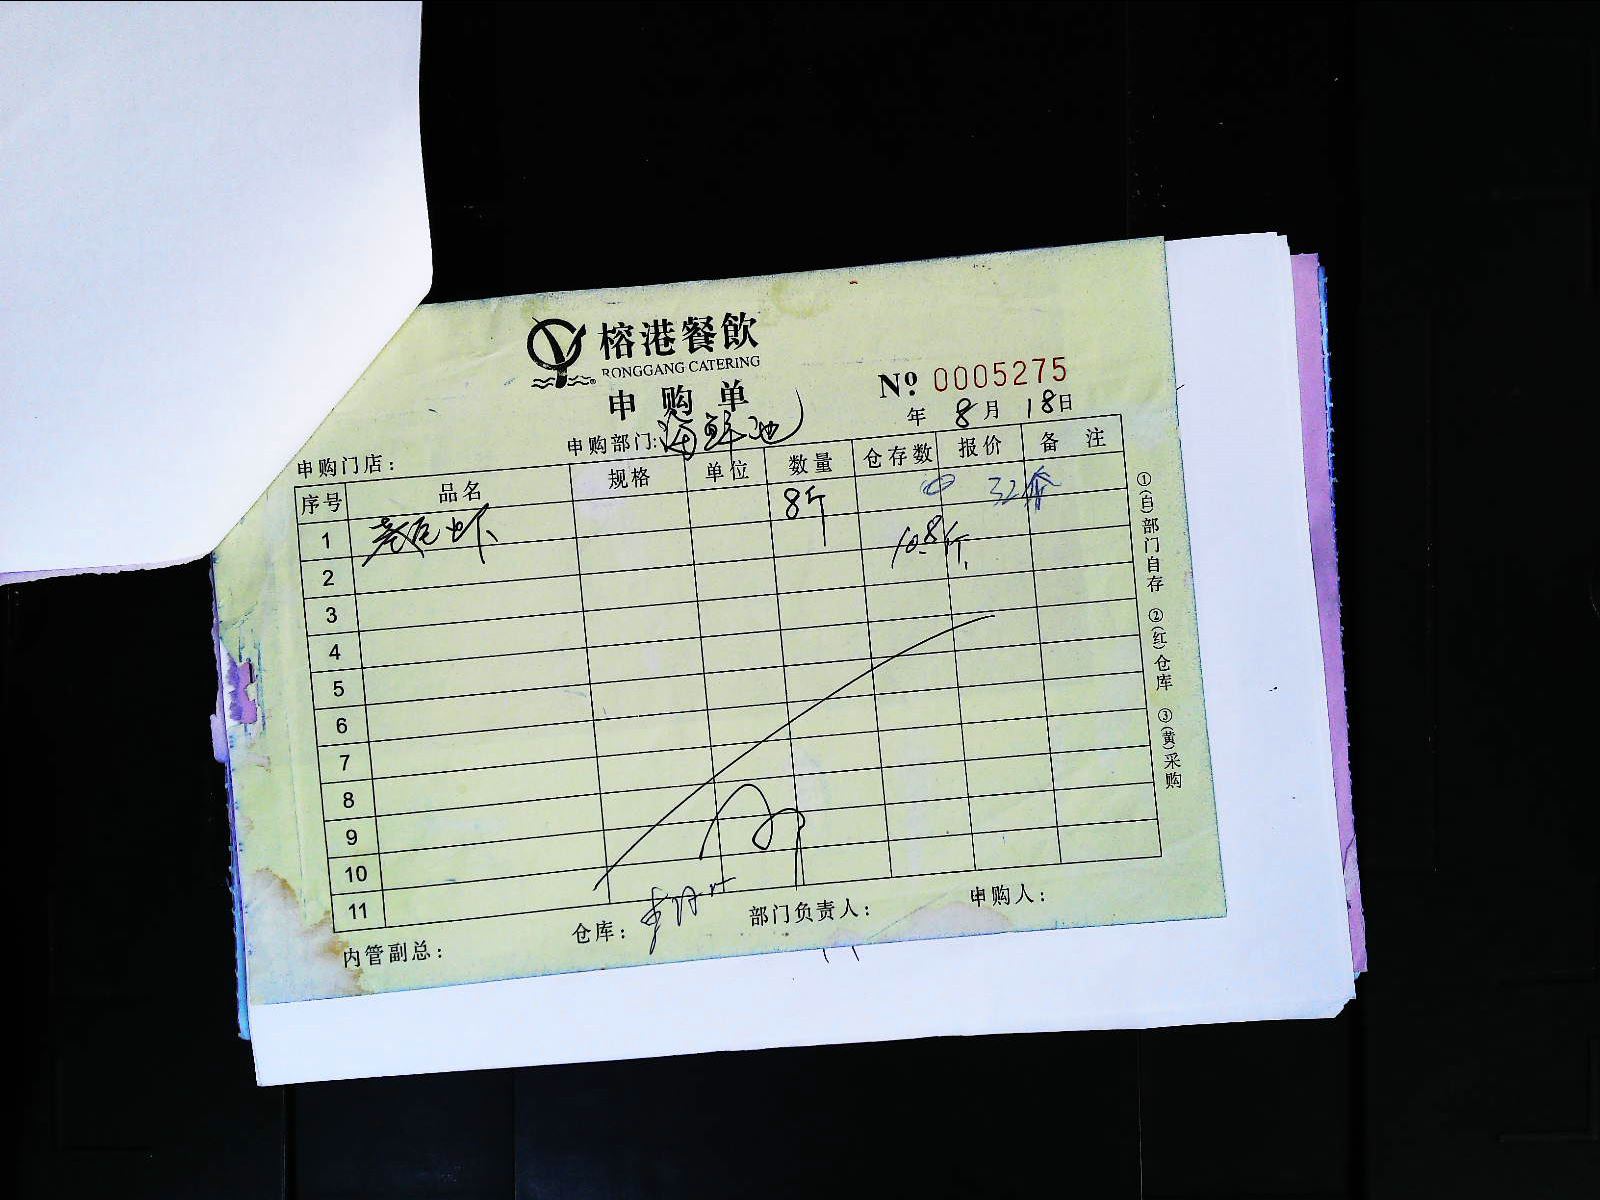 榕港餐飲
RONGGANG CATERING
申购单
№ 0005275
年 8月 18日
申购门店： 申购部门：海鲜池
序号 品名 规格 单位 数量 仓存数 报价 备注
1 老虎虾 8斤 0 32
10.8斤
2
3
4
5
6
7
8
9
10
11
内管副总： 仓库： 部门负责人： 申购人：
①(白)部门自存 ②(红)仓库 ③(黄)采购